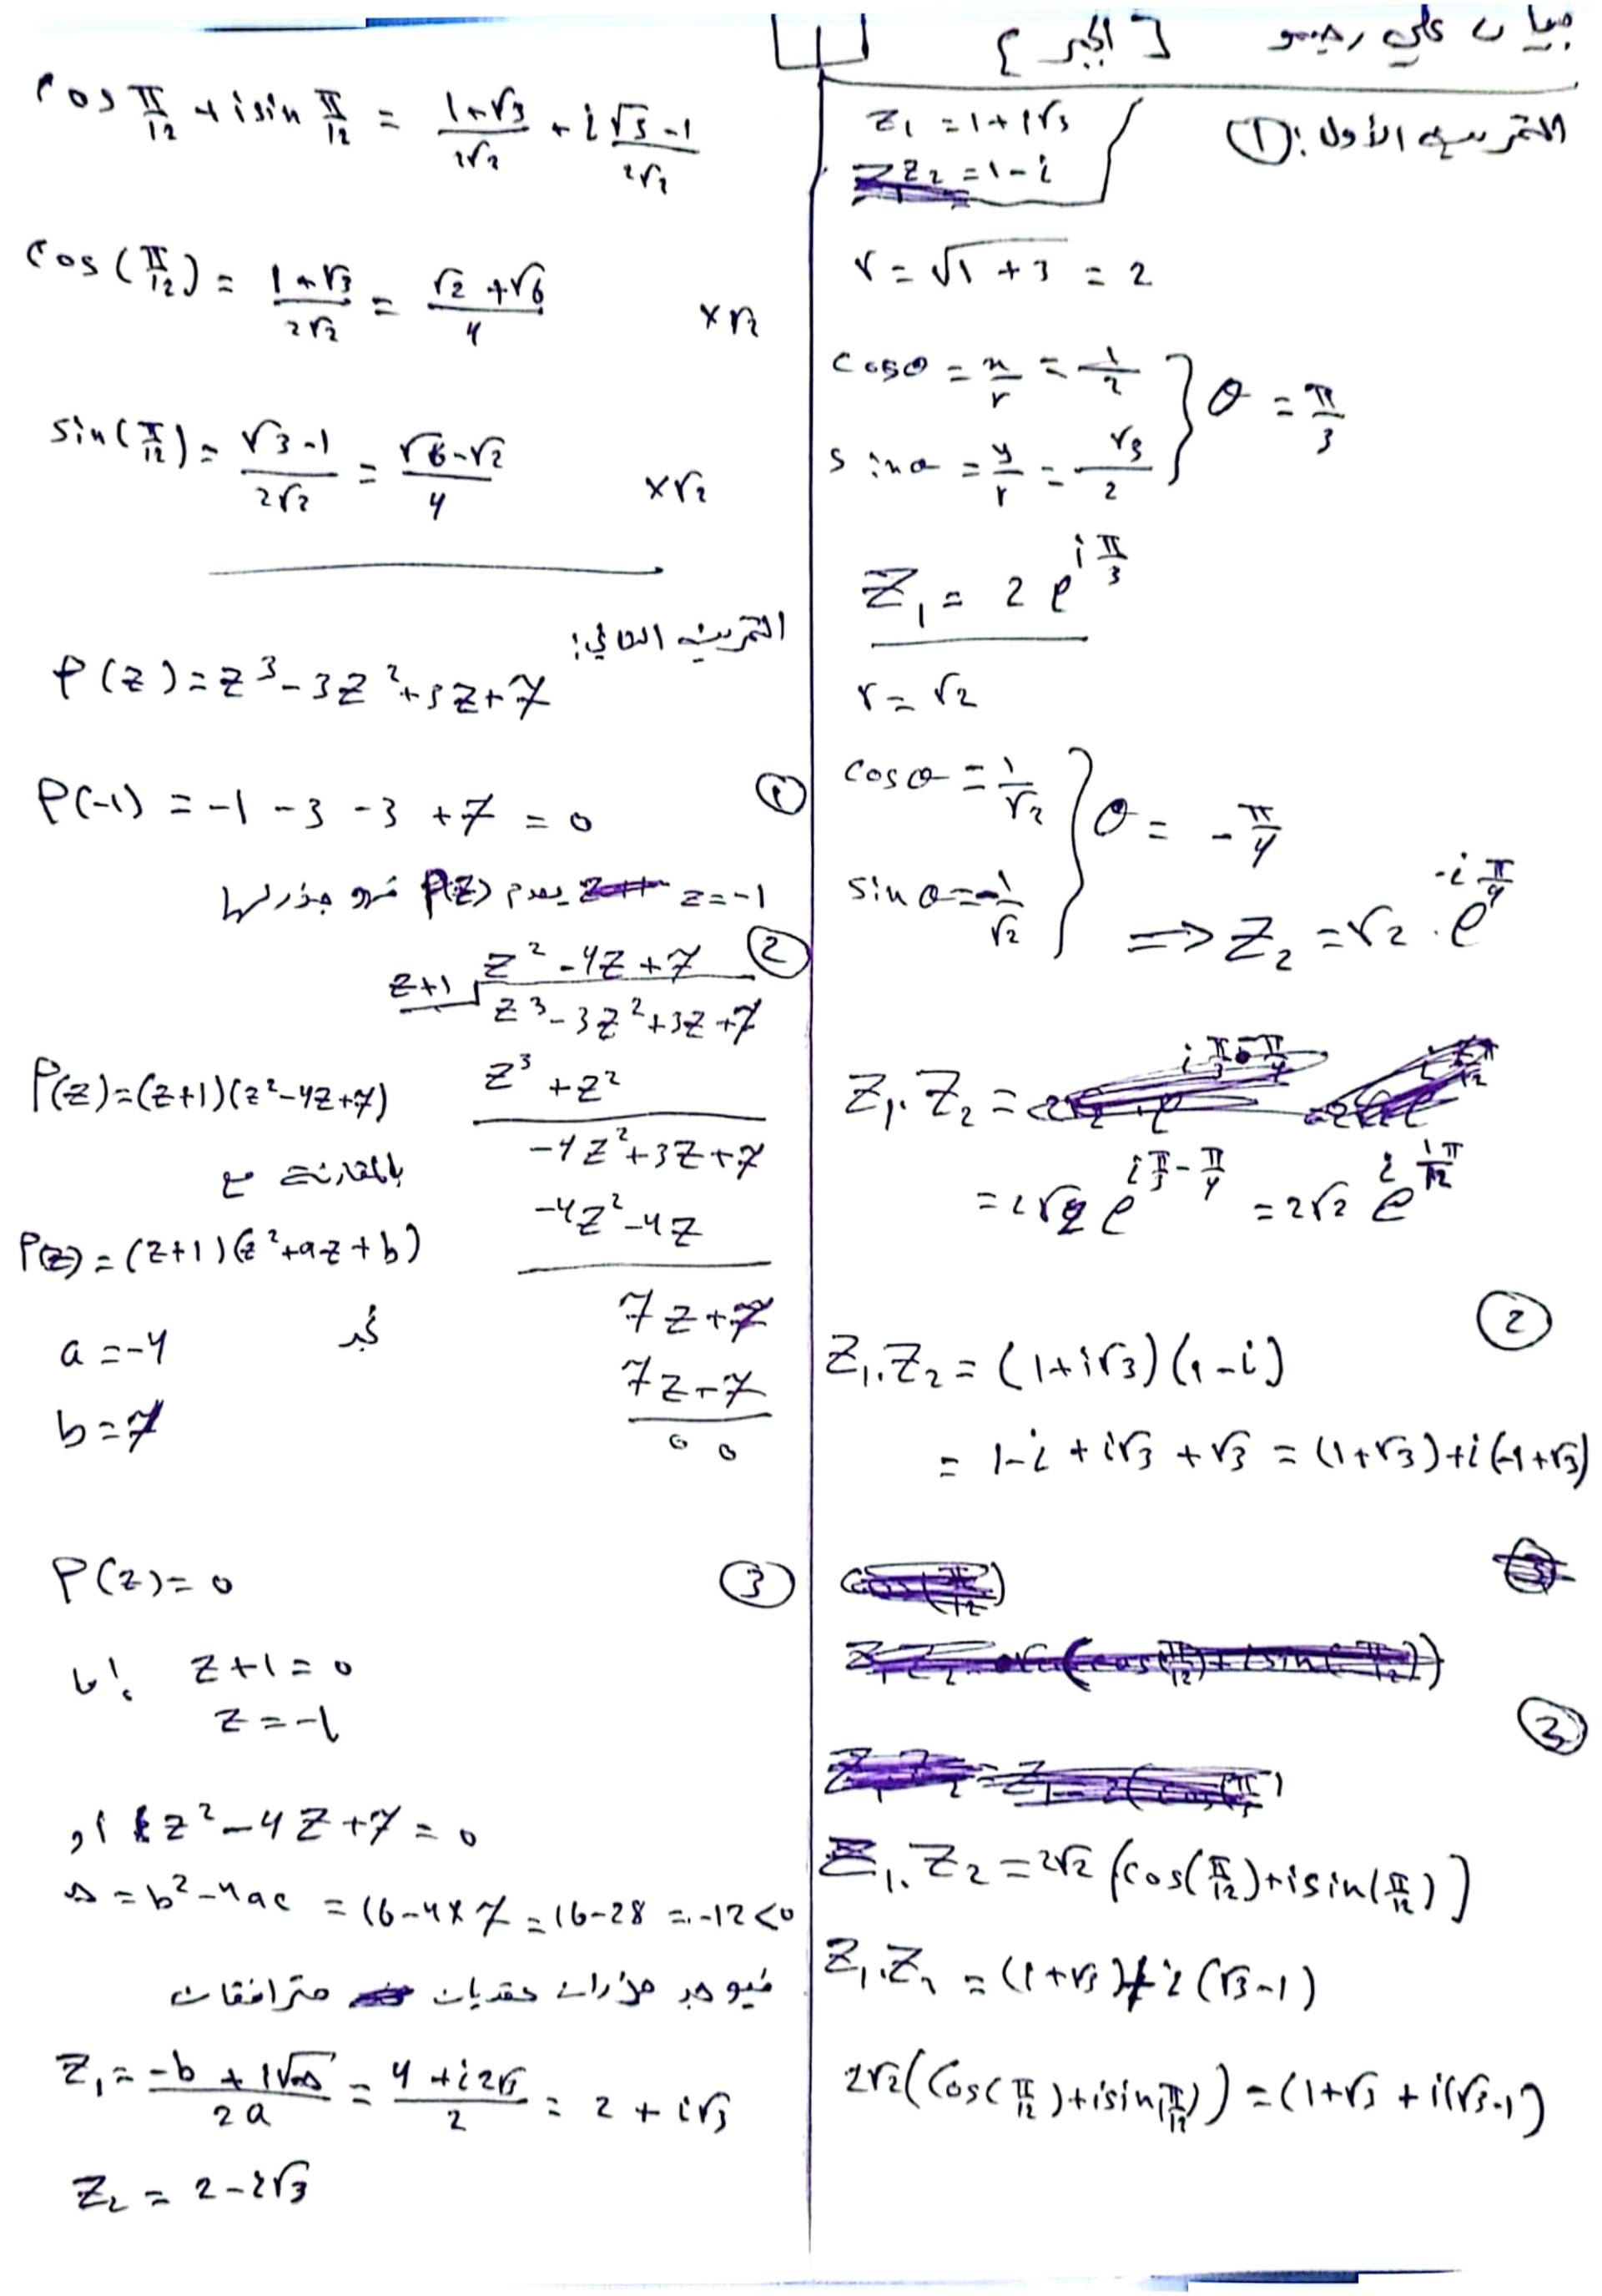 [الجبر]
التمرين الأول: ①
z₁ = 1 + i√3
z₂ = 1 - i
r = √1 + 3 = 2
cosθ = x/r = 1/2
sinθ = y/r = √3/2 } θ = π/3
Z₁ = 2 e^(i π/3)
r = √2
cosθ = 1/√2
sinθ = -1/√2 } θ = -π/4
⇒ Z₂ = √2 . e^(-i π/4)
Z₁. Z₂ =
= 2√2 e^(i π/3 - π/4) = 2√2 e^(i π/12)
②
Z₁.Z₂ = (1+i√3)(1-i)
= 1-i + i√3 + √3 = (1+√3)+i(-1+√3)
③
Z₁. Z₂ = 2√2 (cos(π/12)+isin(π/12))
Z₁.Z₂ = (1+√3)+i(√3-1)
2√2(cos(π/12)+isin(π/12)) = (1+√3 + i(√3-1)
cos π/12 + i sin π/12 = (1+√3)/(2√2) + i (√3-1)/(2√2)
cos(π/12) = (1+√3)/(2√2) = (√2+√6)/4 ×√2
sin(π/12) = (√3-1)/(2√2) = (√6-√2)/4 ×√2
التمرين الثاني:
P(z) = z³ - 3z² + 3z + 7
① P(-1) = -1 - 3 - 3 + 7 = 0
z = -1 يعدم P(z) فهو جذر لها
②
z² - 4z + 7
z+1 z³ - 3z² + 3z + 7
z³ + z²
-4z² + 3z + 7
-4z² - 4z
7z + 7
7z + 7
0 0
P(z) = (z+1)(z²-4z+7)
بالمقارنة مع
P(z) = (z+1)(z²+az+b)
نجد
a = -4
b = 7
③ P(z) = 0
إما z+1 = 0
z = -1
أو z² - 4z + 7 = 0
Δ = b² - 4ac = 16-4×7 = 16-28 = -12 < 0
فيوجد جذران عقديان مترافقان
Z₁ = (-b + i√-Δ)/2a = (4 + i2√3)/2 = 2 + i√3
Z₂ = 2 - i√3